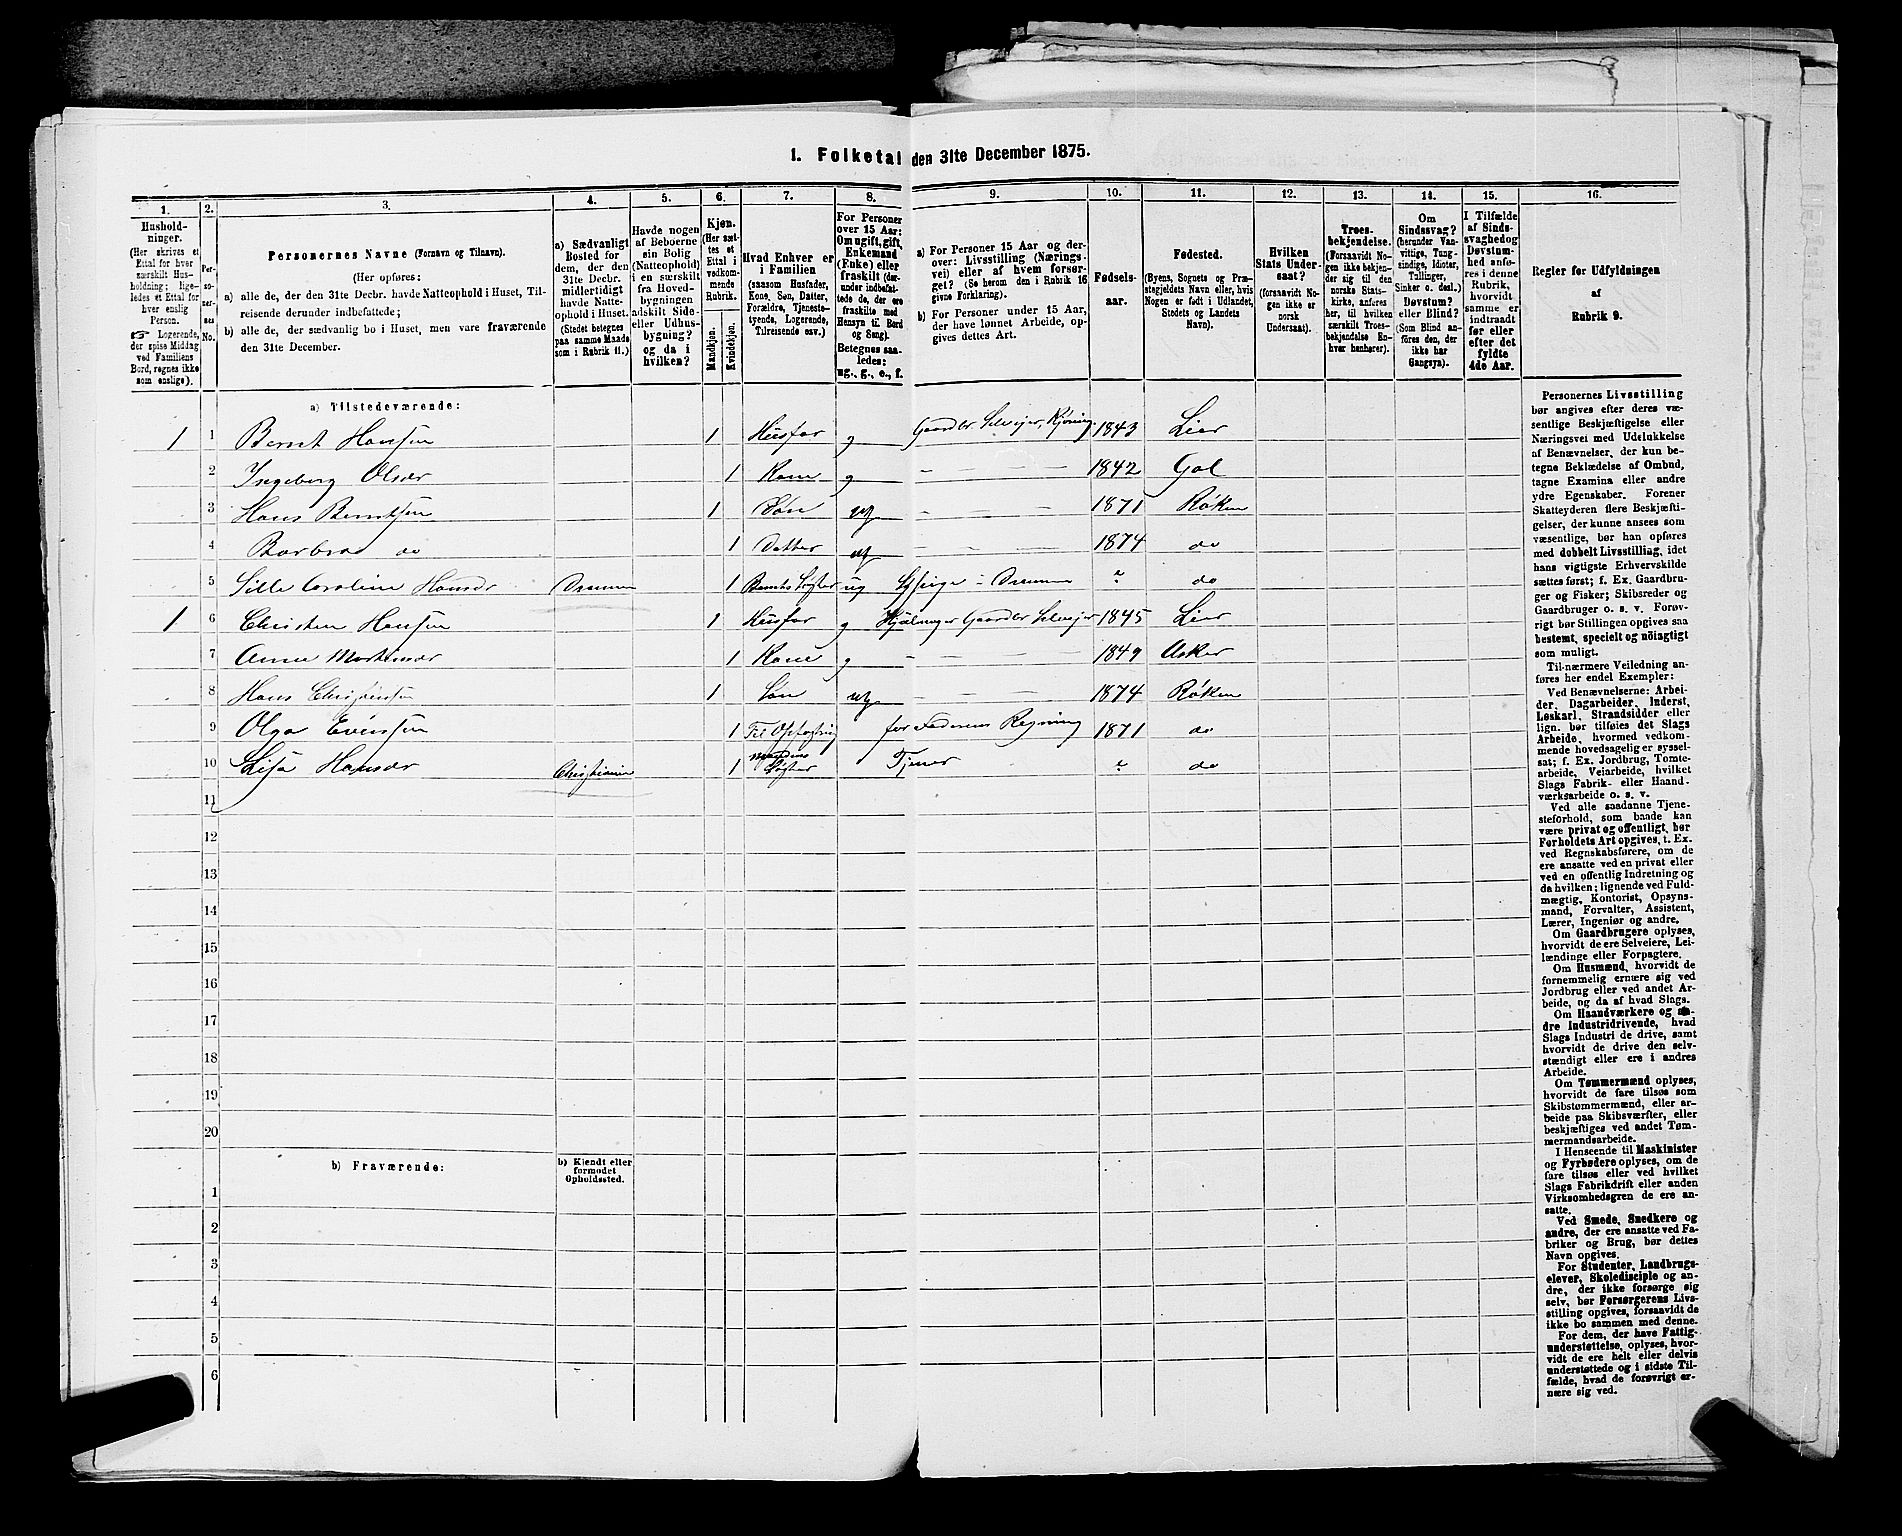 1. Folketal den 31te December 1875.
1.
Husholdninger.
(Her skrives et
Ettal for hver
særskilt Husholdning; ligeledes et Ettal for
hver enslig
Person.
☞ Logerende,
der spise Middag
ved Familiens
Bord, regnes ikke
som enslige).
2.
Personernes
No.
3.
Personernes Navne (Fornavn og Tilnavn).
(Her opføres:
a) alle de, der den 31te Decbr. havde Natteophold i Huset, Tilreisende derunder indbefattede;
b) alle de, der sædvanlig bo i Huset, men vare fraværende
den 31te December.
4.
a) Sædvanligt
Bosted for
dem, der den
31te Decbr.
midlertidigt
havde Natteophold i Huset.
(Stedet betegnes
paa samme Maade
som i Rubrik 11.)
5.
Havde nogen
af Beboerne
sin Bolig
(Natteophold)
i en særskilt
fra Hovedbygningen
adskilt Side-
eller Udhusbygning?
og da i
hvilken?
6.
Kjøn.
(Her sættes et
Ettal i
vedkommende
Rubrik.
Mandkjøn.
Kvindekjøn.
7.
Hvad Enhver er
i Familien
(saasom Husfader,
Kone, Søn, Datter,
Forældre, Tjenestetyende, Logerende,
Tilreisende osv.)
8.
For Personer
over 15 Aar:
Om ugift, gift,
Enkemand
(Enke) eller
fraskilt (derunder indbefattede de, der ere
fraskilte med
Hensyn til Bord
og Seng).
Betegnes saaledes:
ug., g., e., f.
9.
a) For Personer 15 Aar og derover: Livsstilling (Næringsvei) eller af hvem forsørget? (Se herom den i Rubrik 16
givne Forklaring).
b) For Personer under 15 Aar,
der have lønnet Arbeide, opgives dettes Art.
10.
Fødselsaar.
11.
Fødested.
(Byens, Sognets og Præstegjeldets Navn eller, hvis
Nogen er født i Udlandet,
Stedets og Landets
Navn).
12.
Hvilken
Stats Undersaat?
(forsaavidt Nogen ikke er
norsk
Undersaat).
13.
Troesbekjendelse.
(Forsaavidt Nogen ikke bekjender sig til den
norske Statskirke, anføres
her, til hvilken
særskilt Troesbekjendelse Enhver henhører).
14.
Om
Sindssvag?
(herunder Vanvittige, Tungsindige, Idioter,
Tullinger,
Sinker o. desl.)
Døvstum?
eller Blind?
(Som Blind anføres den, der
ikke har
Gangsyn).
15.
I Tilfælde
af Sindssvaghed og
Døvstumhed anføres i denne
Rubrik,
hvorvidt
samme er
indtraadt
før eller
efter det
fyldte
4de Aar.
16.
Regler for Udfyldningen
af
Rubrik 9.
a) Tilstedeværende:
1 1 Bernt Hansen 1 Husfar g Gaardbr Selveier, Kjöring 1843 Lier
2 Ingeborg Olsdr 1 Kone g — — — 1842 Gol
3 Hans Berntsen 1 Sön ug — — — 1871 Röken
4 Barbra do 1 Datter ug — — — 1874 do
5 Sille Caroline Hansdr Drammen 1 Bernts Søster ug i Drammen " do
1 6 Christen Hansen 1 Husfar g Gaardbr Selveier 1845 Lier
7 Anne Mortensdr 1 Kone g — — — 1849 Asker
8 Hans Christensen 1 Sön ug — — — 1874 Röken
9 Olga Evensen 1 Til Opfostring for Faderens Regning 1871 do
10 Lisa Hansdr Christiania 1 Mandens Søster Tjener " do
11
12
13
14
15
16
17
18
19
20
b) Fraværende:
b) Kjendt eller
formodet
Opholdssted.
1
2
3
4
5
6
Personernes Livsstilling
bør angives efter deres væsentlige Beskjæftigelse eller
Næringsvei med Udelukkelse
af Benævnelser, der kun betegne Beklædelse af Ombud,
tagne Examina eller andre
ydre Egenskaber. Forener
Skatteyderen flere Beskjæftigelser, der kunne ansees som
væsentlige, bør han opføres
med dobbelt Livsstilling, idet
hans vigtigste Erhvervskilde
sættes først; f. Ex. Gaardbruger og Fisker; Skibsreder og
Gaardbruger o. s. v. Forøvrigt bør Stillingen opgives saa
bestemt, specielt og nöiagtigt
som muligt.
Til nærmere Veiledning anføres her endel Exempler:
Ved Benævnelserne: Arbeider, Dagarbeider, Inderst,
Løskarl, Strandsidder eller
lign. bør tilføies det Slags
Arbeide, hvormed vedkommende hovedsagelig er sysselsat; f. Ex. Jordbrug, Tomtearbeide, Veiarbeide, hvilket
Slags Fabrik- eller Haandværksarbeide o. s. v.
Ved alle saadanne Tjenesteforhold, som baade kan
være privat og offentligt, bør
Forholdets Art opgives, t. Ex.
ved Regnskabsførere, om de
ere ansatte ved en privat eller
ved en offentlig Indretning og
da hvilken; lignende ved Fuldmægtig, Kontorist, Opsynsmand, Forvalter, Assistent,
Lærer, Ingeniør og andre.
Om Gaardbrugere oplyses,
hvorvidt de ere Selveiere, Leilændinge eller Forpagtere.
Om Husmænd, hvorvidt de
fornemmelig ernære sig ved
Jordbrug eller ved andet Arbeide, og da af hvad Slags.
Om Haandværkere og andre Industridrivende, hvad
Slags Industri de drive, samt
hvorvidt de drive den selvstændigt eller ere i andres
Arbeide.
Om Tømmermænd oplyses,
hvorvidt de fare tilsøs som
Skibstømmermænd, eller arbeide paa Skibsværfter, eller
beskjæftiges ved andet Tømmermandsarbeide.
I Henseende til Maskinister
og Fyrbødere oplyses, om de
fare tilsøs eller ved hvilket
Slags Fabrikdrift eller anden
Virksomhedsgren de ere ansatte.
Ved Smede, Snedkere og
andre, der ere ansatte ved Fabriker og Brug, bør dettes
Navn opgives.
For Studenter, Landbrugselever, Skoledisciple og andre, der ikke forsørge sig
selv, bør Forsørgerens Livsstilling opgives, forsaavidt de
ikke bo sammen med denne.
For dem, der have Fattigunderstøttelse, oplyses, hvorvidt de ere helt eller delvis
understøttede og i sidste Tilfælde, hvad de forøvrigt ernære sig ved.